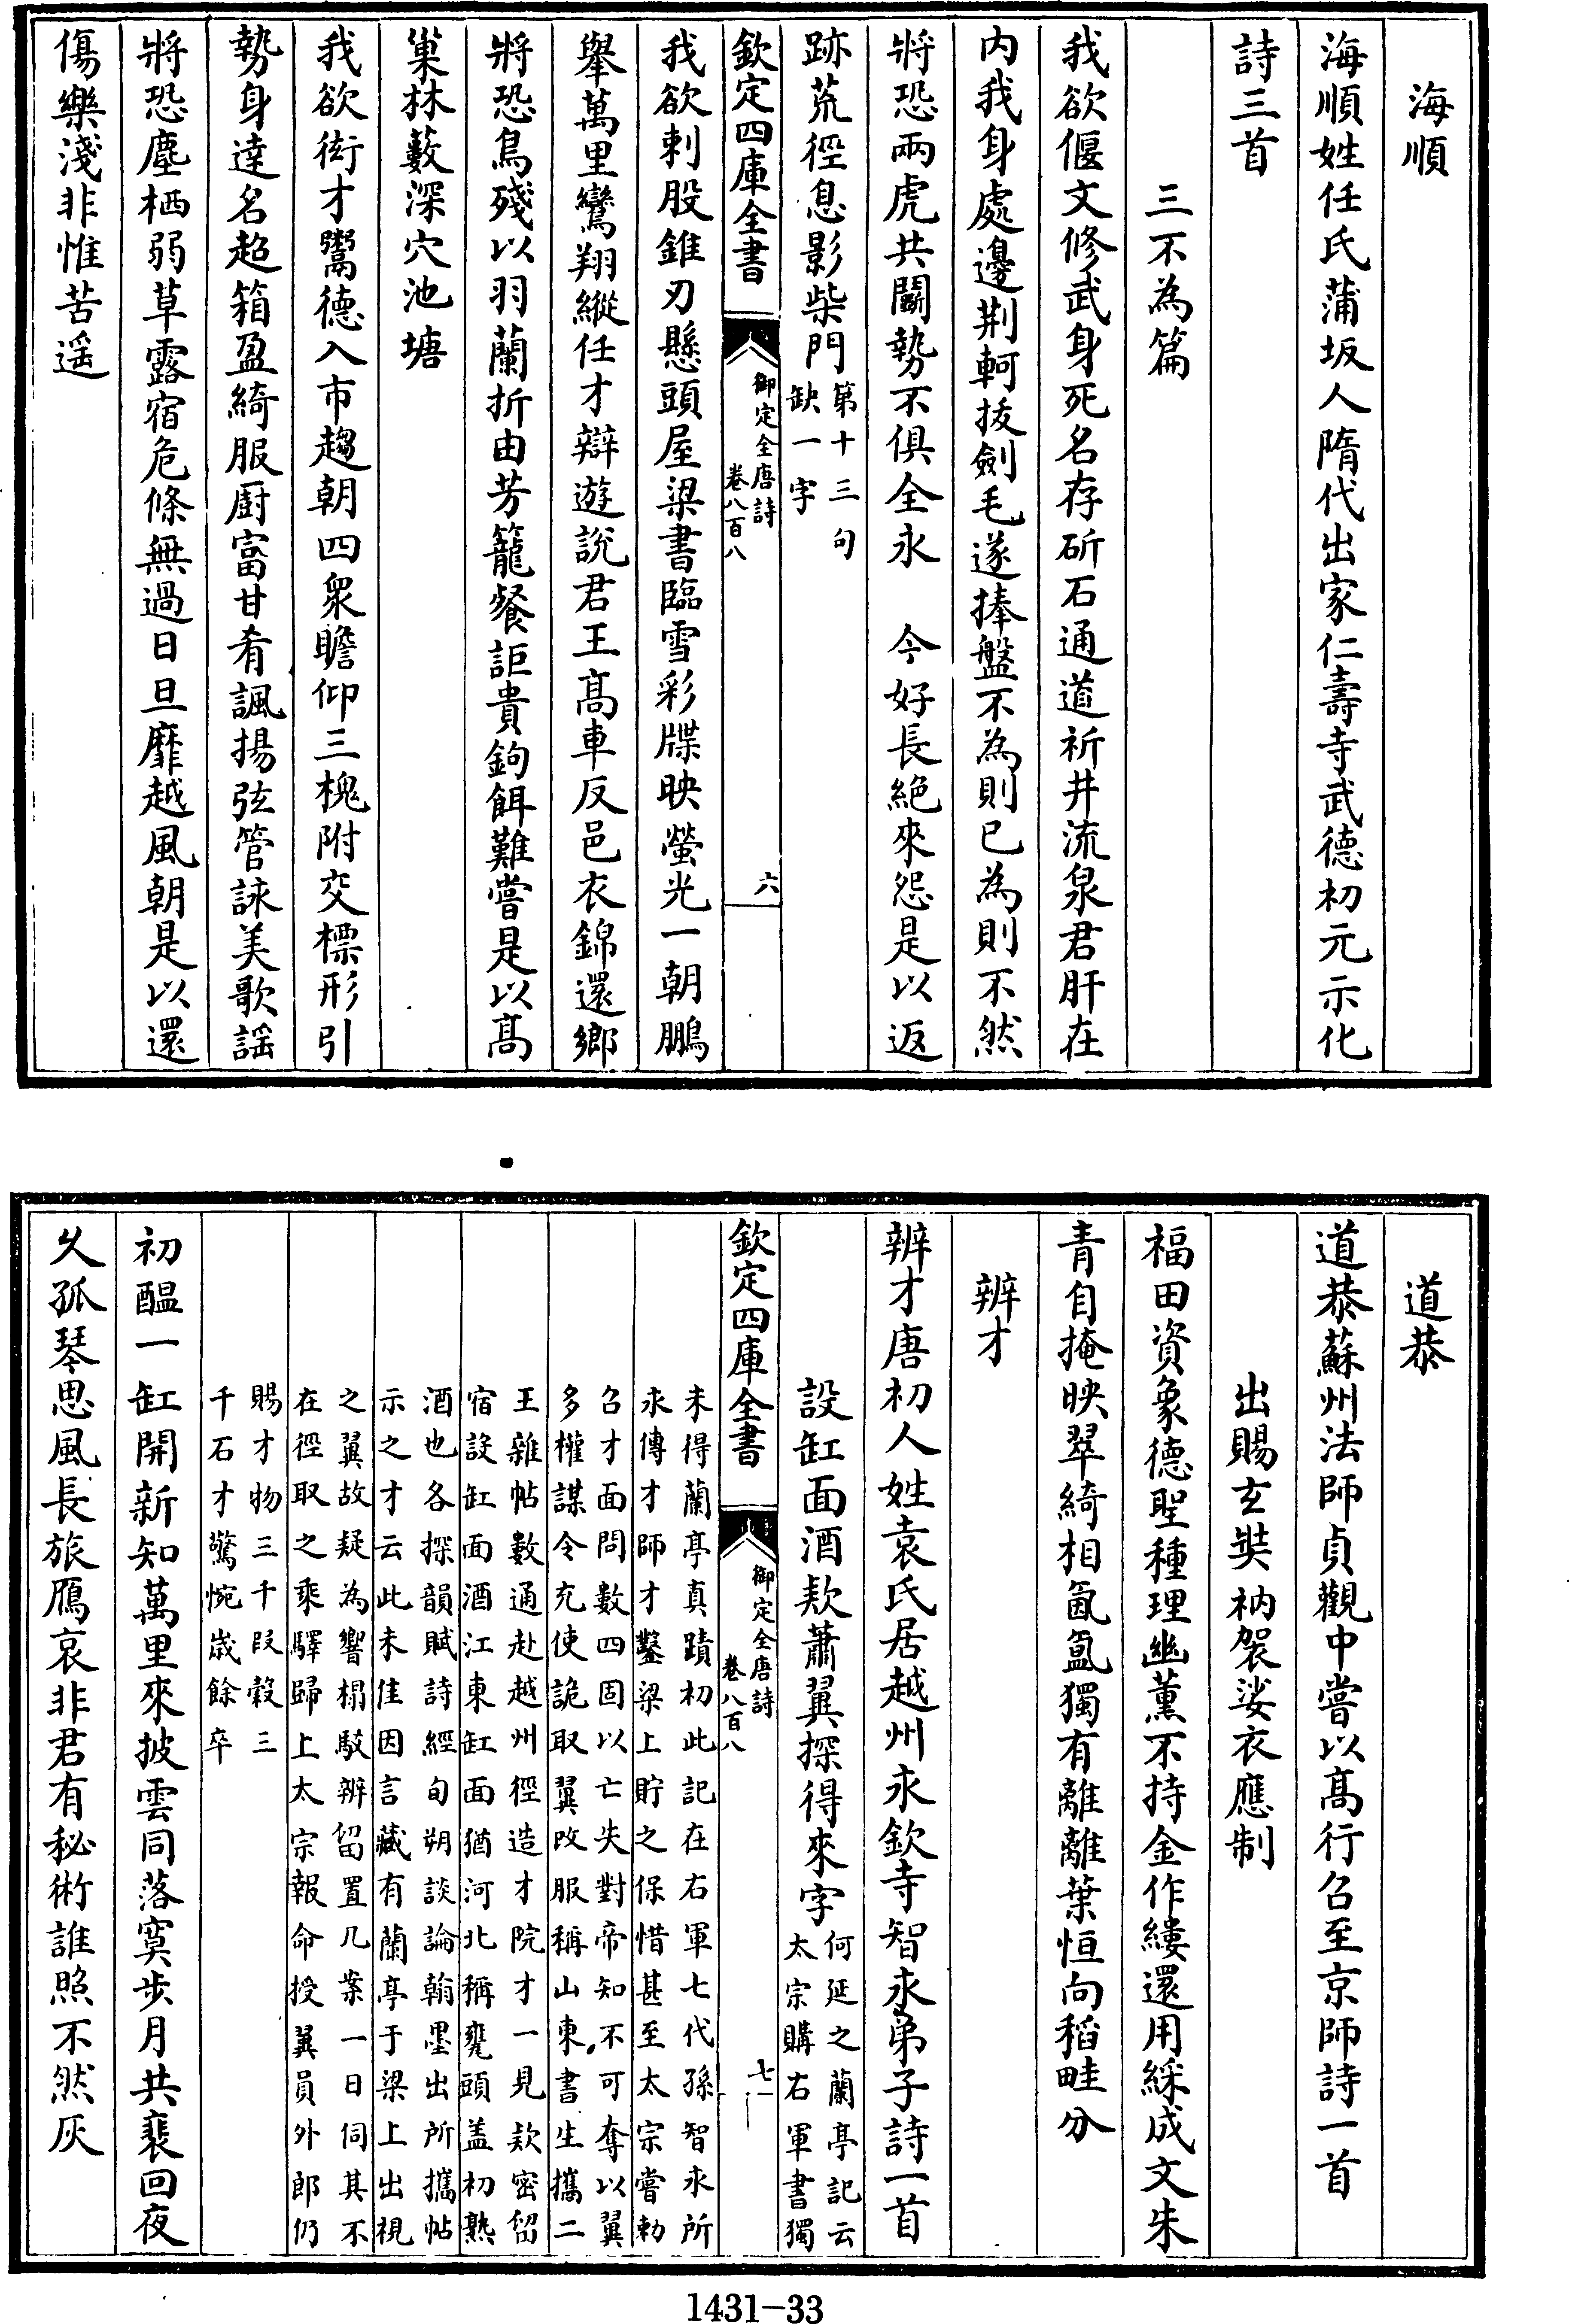 海順
海順姓任氏蒲坂人隋代出家仁壽寺武德初元示化
詩三首
三不為篇
我欲偃文修武身死名存斫石通道祈井流泉君肝在
内我身處邊荆軻拔劍毛遂捧盤不為則已為則不然
將恐兩虎共鬬勢不俱全永　今好長絶來怨是以返
跡荒徑息影柴門第十三句
缺一字
欽定四庫全書
御定全唐詩
卷八百八
六
我欲刺股錐刃懸頭屋梁書臨雪彩牒映螢光一朝鵬
舉萬里鸞翔縱任才辯遊說君王高車反邑衣錦還鄉
將恐鳥殘以羽蘭折由芳籠餐詎貴鉤餌難嘗是以高
巢林藪深穴池塘
我欲衒才鬻德入市趨朝四衆瞻仰三槐附交標形引
勢身達名超箱盈綺服厨富甘肴諷揚弦管詠美歌謡
將恐塵栖弱草露宿危條無過日旦靡越風朝是以還
傷樂淺非惟苦遥
道恭
道恭蘇州法師貞觀中嘗以高行召至京師詩一首
出賜玄奘衲袈裟衣應制
福田資象德聖種理幽薰不持金作縷還用綵成文朱
青自掩映翠綺相氤氲獨有離離葉恒向稻畦分
辨才
辨才唐初人姓袁氏居越州永欽寺智永弟子詩一首
設缸面酒欵蕭翼探得來字何延之蘭亭記云
太宗購右軍書獨
欽定四庫全書
御定全唐詩
卷八百八
七
未得蘭亭真蹟初此記在右軍七代孫智永所
永傳才師才鑿梁上貯之保惜甚至太宗嘗勅
召才面問數四固以亡失對帝知不可奪以翼
多權謀令充使詭取翼改服稱山東書生攜二
王雜帖數通赴越州徑造才院才一見欵密留
宿設缸面酒江東缸面猶河北稱甕頭盖初熟
酒也各探韻賦詩經旬朔談論翰墨出所攜帖
示之才云此未佳因言藏有蘭亭于梁上出視
之翼故疑為響榻駮辨留置几案一日伺其不
在徑取之乘驛歸上太宗報命授翼員外郎仍
賜才物三千段穀三
千石才驚惋歲餘卒
初醖一缸開新知萬里來披雲同落寞步月共裴回夜
久孤琴思風長旅鴈哀非君有秘術誰照不然灰
1431-33